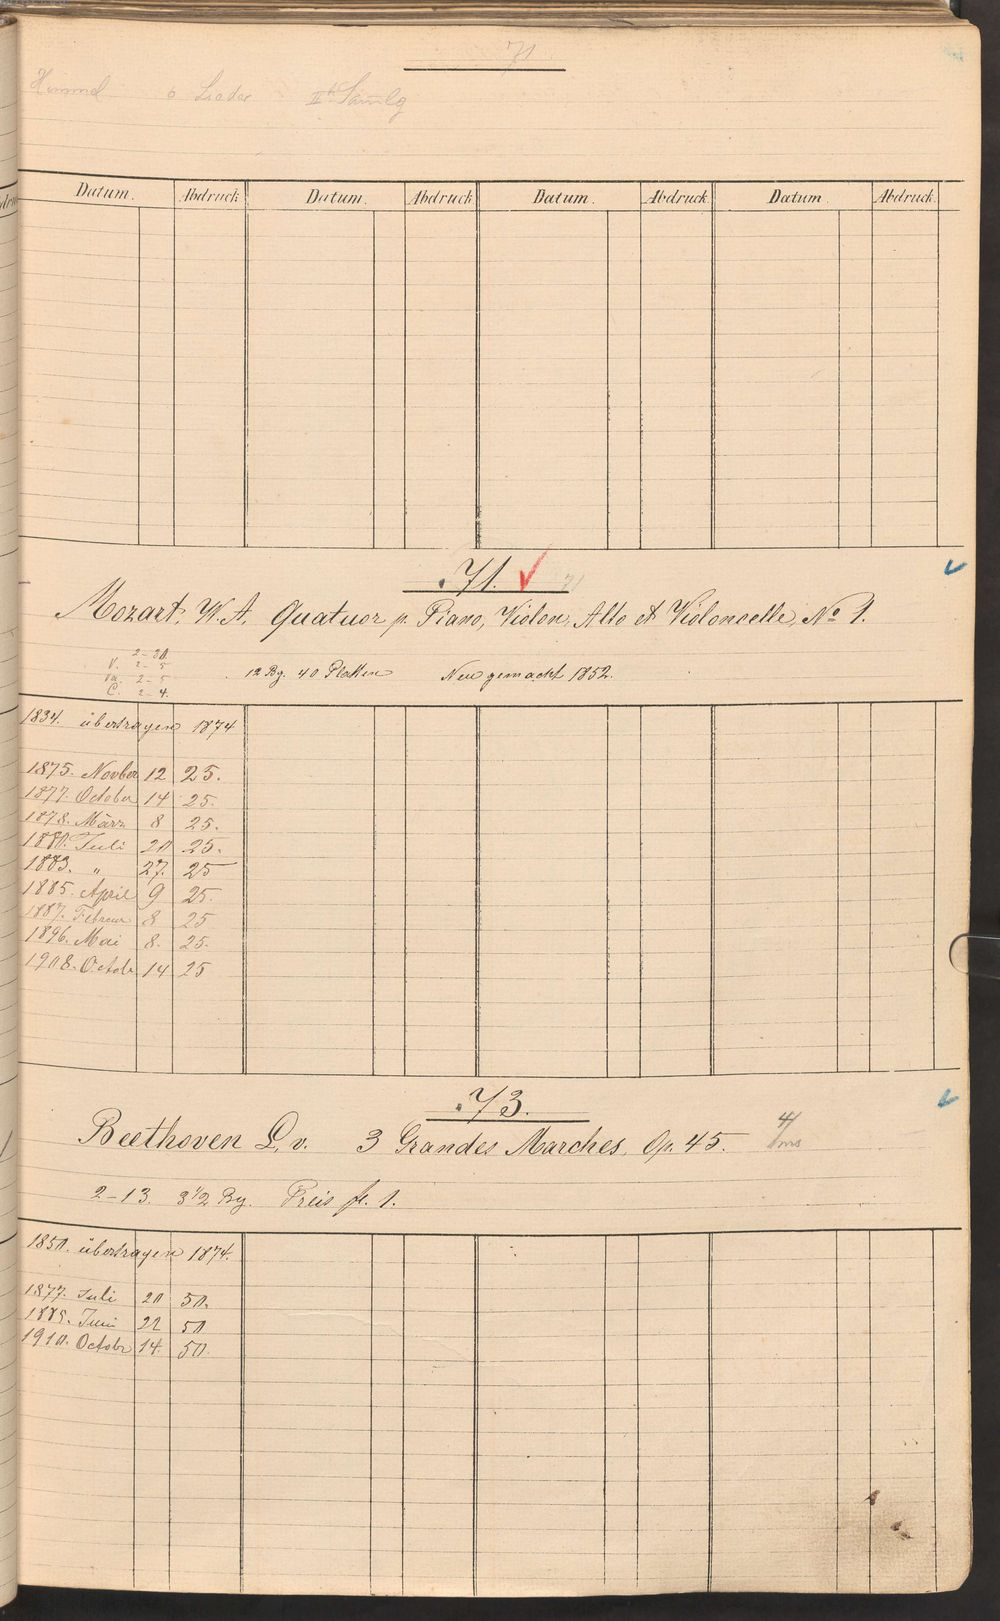 71
Himmel 6 Lieder IIte Samlg
Datum. Abdruck Datum. Abdruck Datum. Abdruck. Datum. Abdruck.
71. ✓ 71
Mozart, W. A. Quatuor p. Piano, Violon, Alto et Violoncelle, No 1.
2-30.
V. 2-5
Va. 2-5
C. 2-4.
12 Bg. 40 Platten Neu gemacht 1852.
1834. übertragen 1874
1875. Novber 12 25.
1877. October 14 25.
1878. März 8 25.
1880. Juli 20 25.
1883. " 27. 25
1885. April 9 25.
1887. Februar 8 25
1896. Mai 8. 25.
1908. Octobr 14 25
73.
Beethoven L. v. 3 Grandes Marches. Op. 45. 4/ms
2-13. 3 1/2 Bg. Preis fl. 1.
1850. übertragen 1874.
1877. Juli 20 50.
1885. Juni 22 50
1910. Octobr 14. 50.